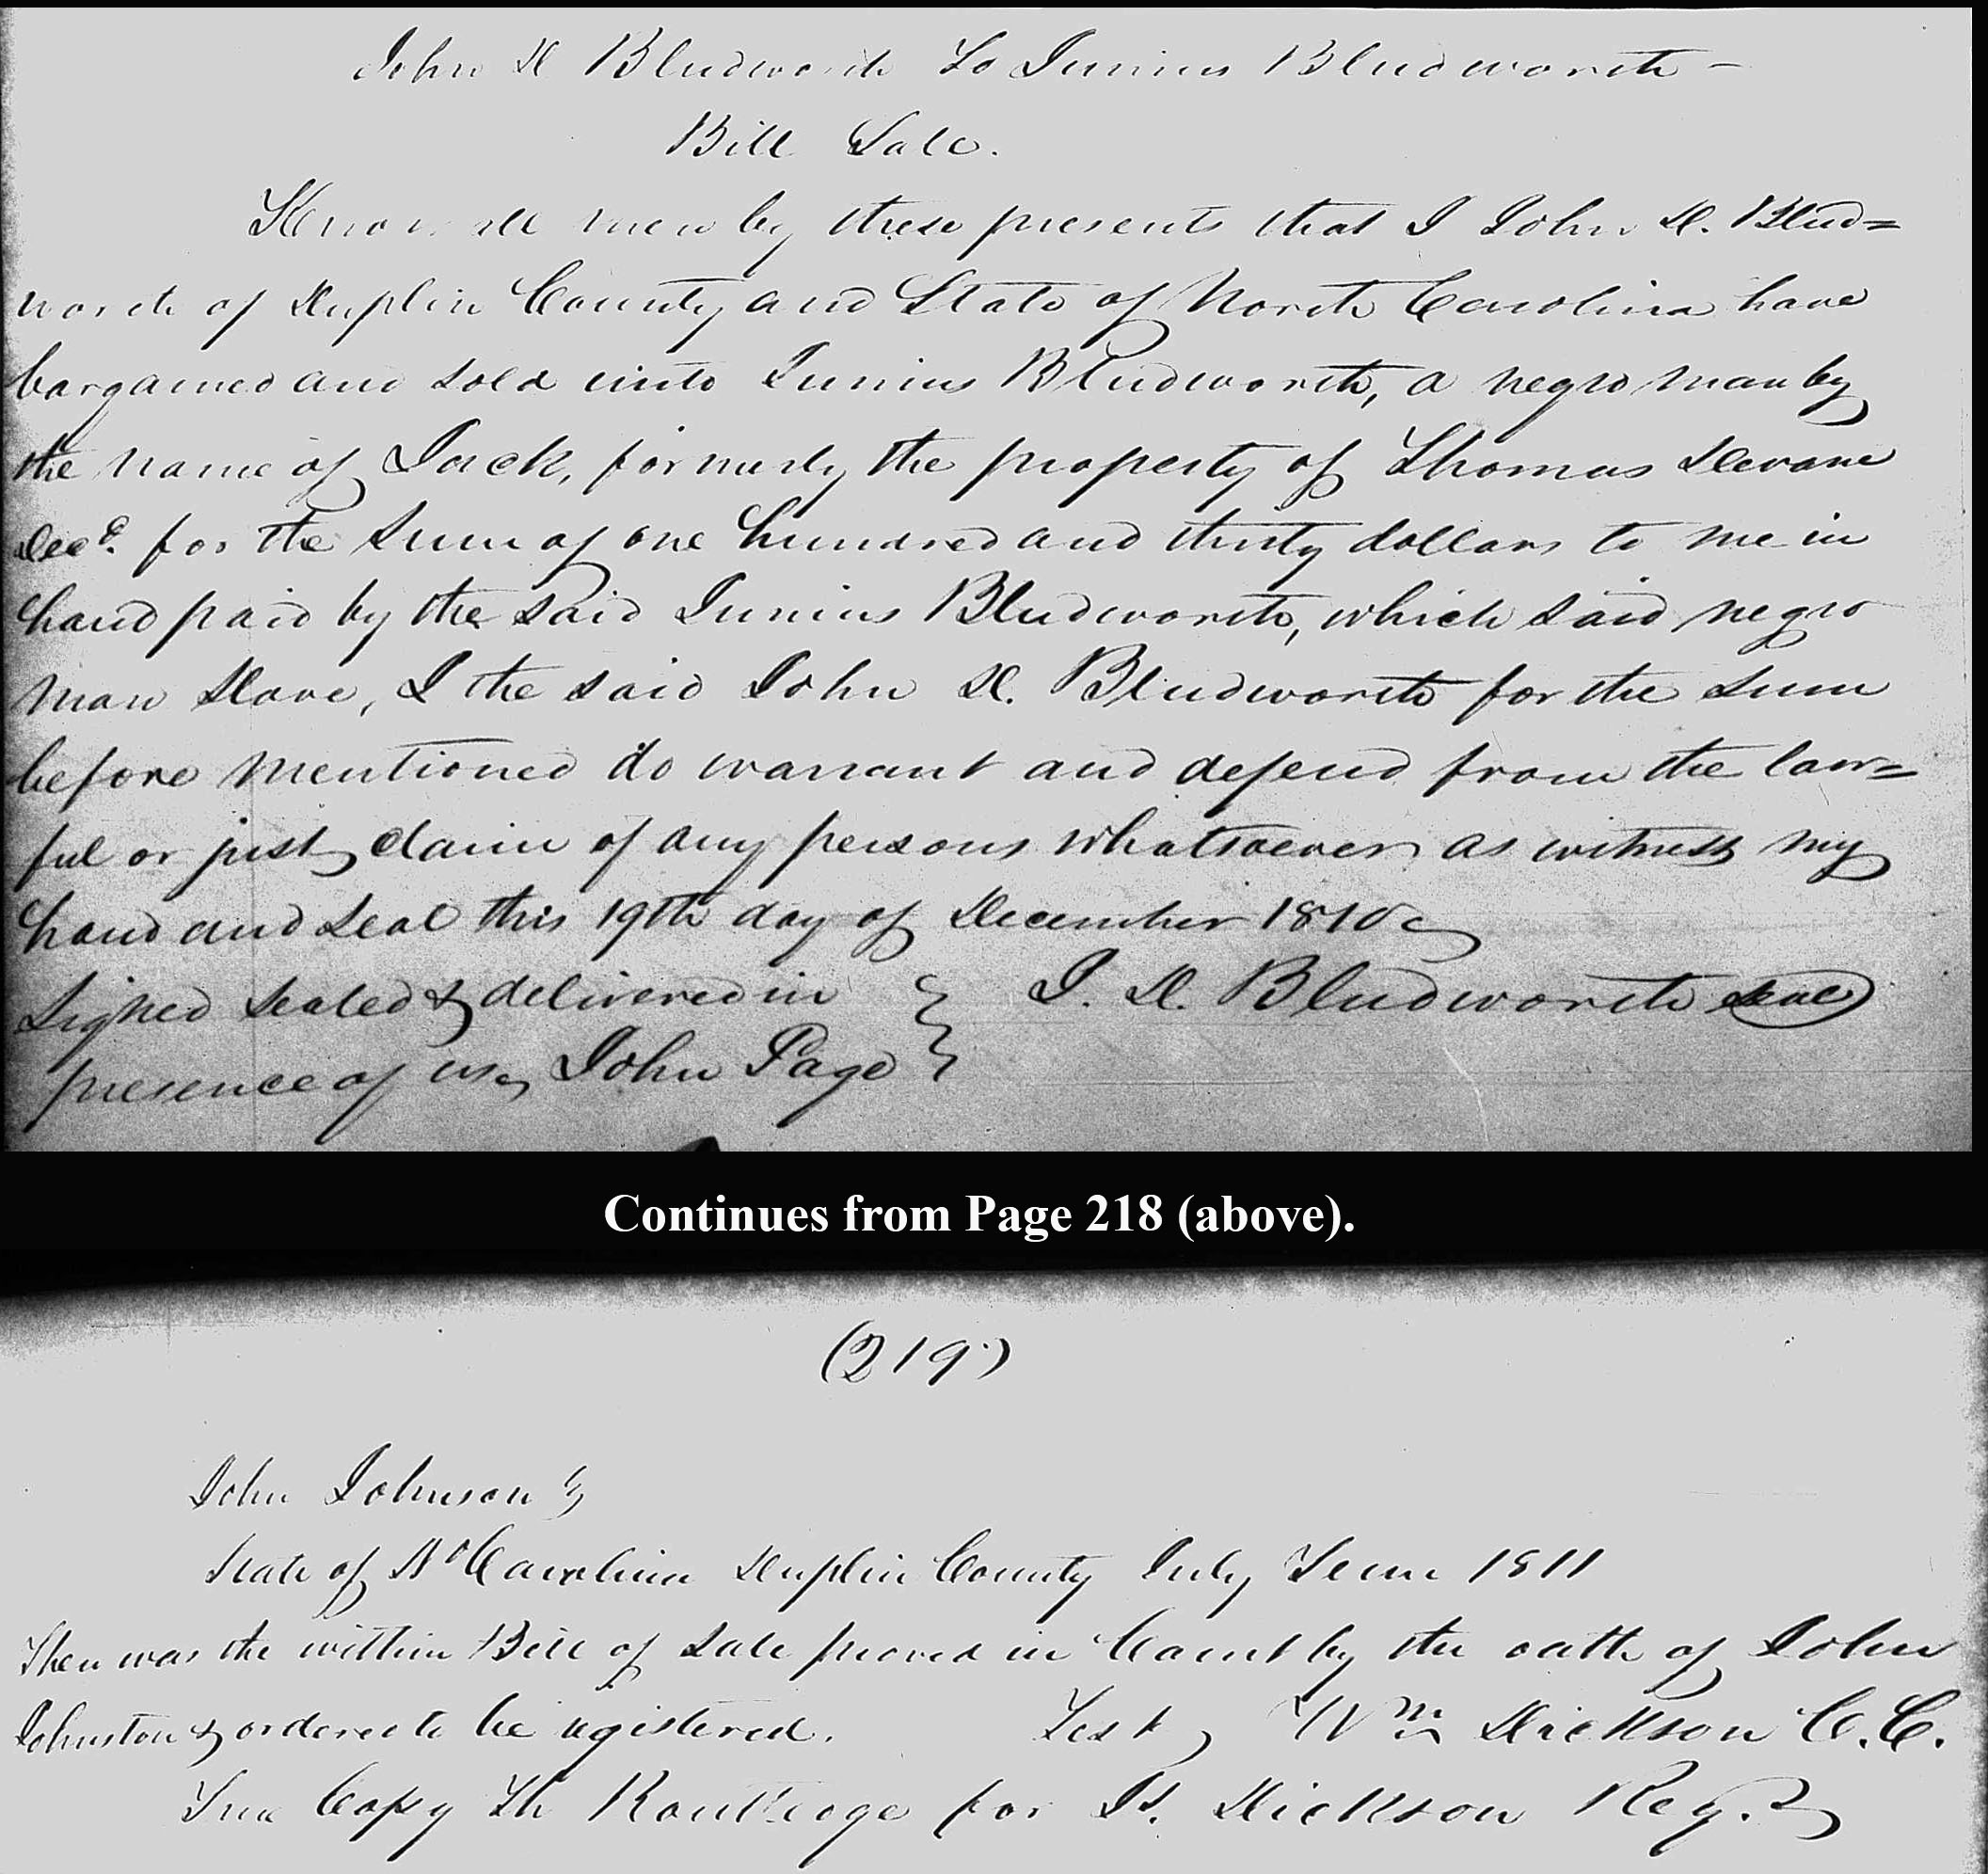 John D Bludworth To Junius Bludworth –
Bill Sale.
Know all men by these presents that I John D. Blud=
worth of Duplin County and State of North Carolina have
bargained and sold unto Junius Bludworth, a negro man by
the name of Jack, formerly the property of Thomas Devane
Decd. for the sum of one hundred and thirty dollars to me in
hand paid by the said Junius Bludworth, which said negro
man slave, I the said John D. Bludworth for the sum
before mentioned do warrant and defend from the law=
ful or just claim of any persons whatsoever as witness my
hand and seal this 19th day of December 1810
Signed sealed & delivered in } J. D. Bludworth Seal
presence of us, John Page }
Continues from Page 218 (above).
(219)
John Johnson
State of No Carolina Duplin County July Term 1811
Then was the within Bill of Sale proved in Court by the oath of John
Johnston & ordered to be registered. Test, Wm Dickson C.C.
True Copy Th Routledge for Jt. Dickson Reg.